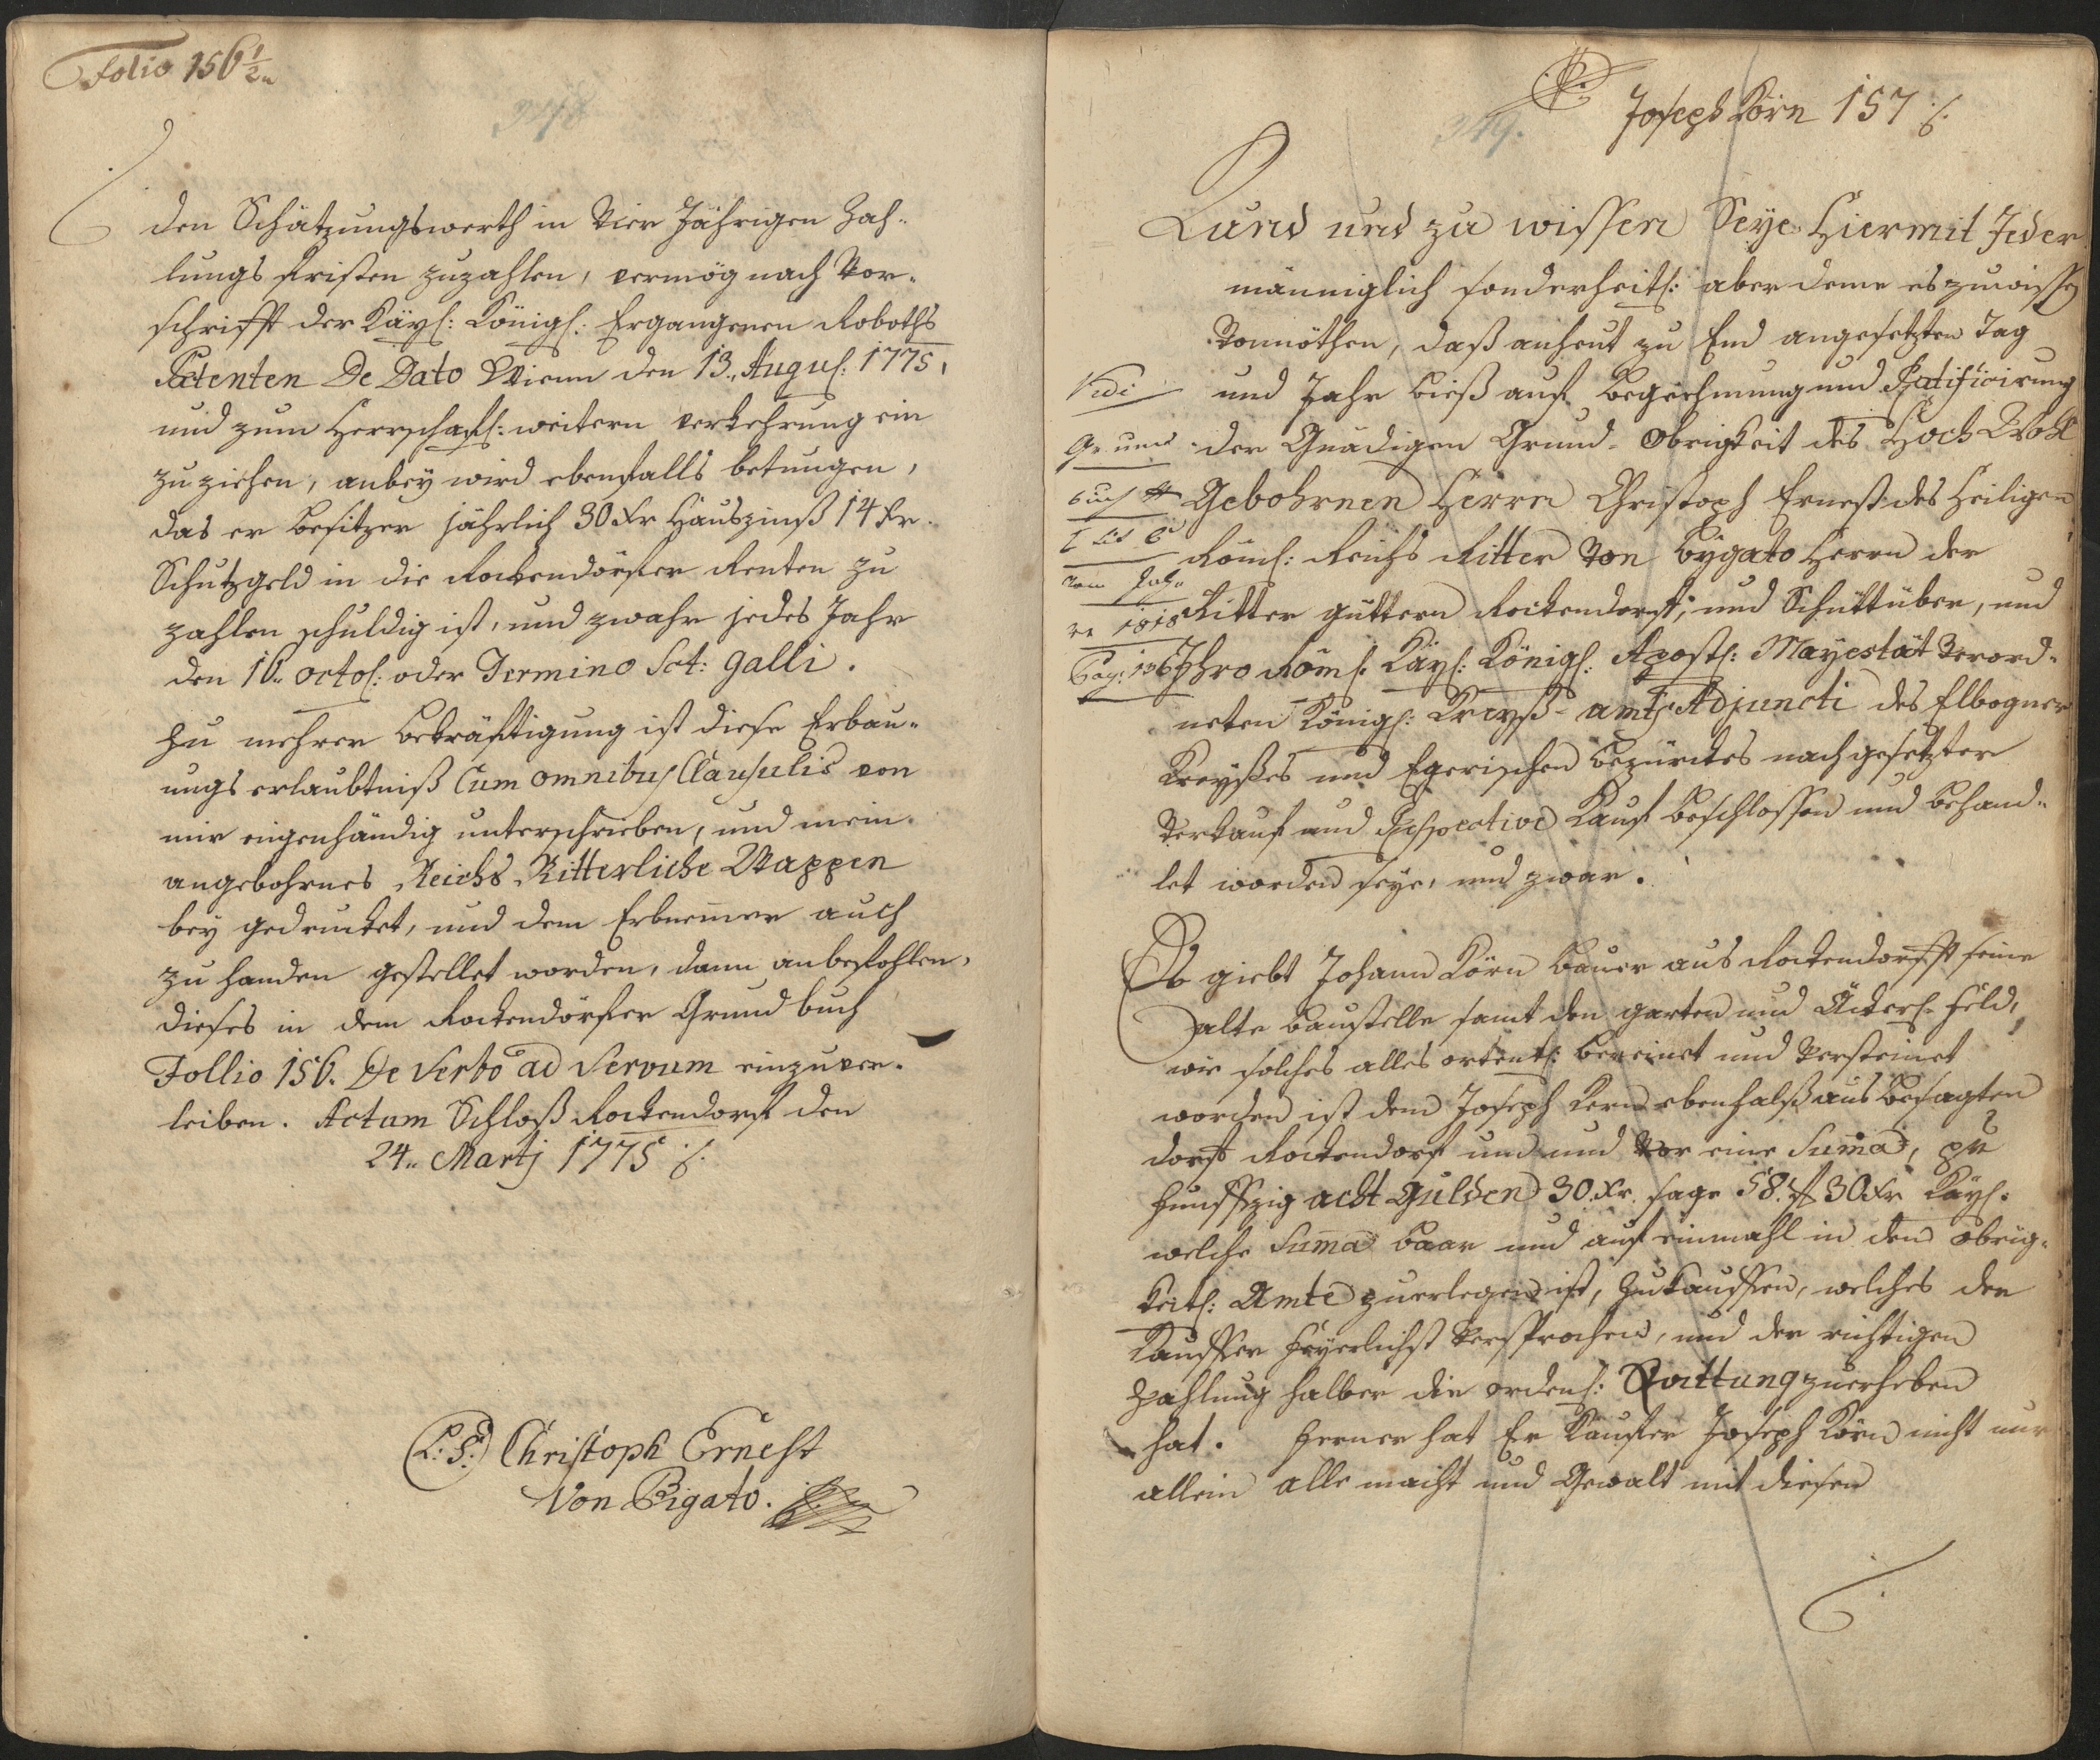 Folio 156 1/2
den Schätzungswerth in Vier Jährigen Zah-
lungs fristen zuzahlen, vermög nach Vor-
schrifft der Kays: Königl: Ergangenen Roboths
Patenten De Dato Wienn den 13. Augus: 1775,
und zum Herrschaftl: weitern verkehrung ein
zu ziehen, anbey wird ebenfalls betungen,
das er Besitzer jährlich 30 Xr Hauszinß 14 Xr.
Schutzgeld in die Rockendörfer Renten zu
zahlen schuldig ist, und zwahr jedes Jahr
den 16. octob: oder Termino Sct: Galli.
Zu mehrer Bekräftigung ist diese Erbau-
ungs erlaubtniß Cum omnibus Clausulis von
mir eigenhändig unterschrieben, und mein
angebohrnes Reichs Ritterliche Wappen
bey gedrucket, und dem Erbnemer auch
zu handen gestellet worden, dann anbefohlen,
dieses in dem Rockendörfer Grund buch
Follio 156. De Verbo ad Verbum einzuver-
leiben. Actum Schloß Rockendorf den
24. Martj 1775
(L: S:) Christoph Ernest
Von Bigato.
349.
Joseph Körn 157
Kund und zu wissen Seye Hiermit Jeder
männiglich sonderheitl: aber deme es zuwissen
Vonnöthen, daß anheut zu End angesetzten Tag
und Jahr bieß auf Begnehmung und Ratificirung
der Gnädigen Grund-Obrigkeit des Hoch Wohl
Gebohrnen Herrn Christoph Ernest des Heiligen
Röml: Reichs Ritter Von Bygato Herrn der
Ritter güttern Rockendorf, und Schüttüber, und
Ihro Röml: Kays: Königl: Apostl: Mayestät Verord-
neten Königl: Kreyß-amts Adjuncti des Elbogner
Kreyßes und Egerischen Bezürckes nachgesetzter
Verkauf und Respective Kauf beschlossen und behand-
let worden seye, und zwar.
Vidi
Grund
buch
vom Jah-
re 1818
Pag: 136
Ob giebt Johann Körn Bauer aus Rockendorff seine
alte baustelle samt den garten und Äckerl-feld,
wie solches alles ortentl: bereinet und Versteinet
worden ist dem Joseph Kern ebenfalß aus besagten
dorf Rockendorf um und Vor eine Suma, pr
funffzig acht Gulden 30. Xr. sage 58. fl 30 Xr Kays:
welche Suma baar und auf einmahl in den obrig-
keitl: Amte zuerlegen ist, zukauffen, welches der
Kauffer feyerlichst Versprochen, und der richtigen
Zahlung halber die ordenl: Quittung zuerheben
hat. Ferner hat Er Kaufer Joseph Körn nicht nur
allein alle macht und Gewalt mit diesen